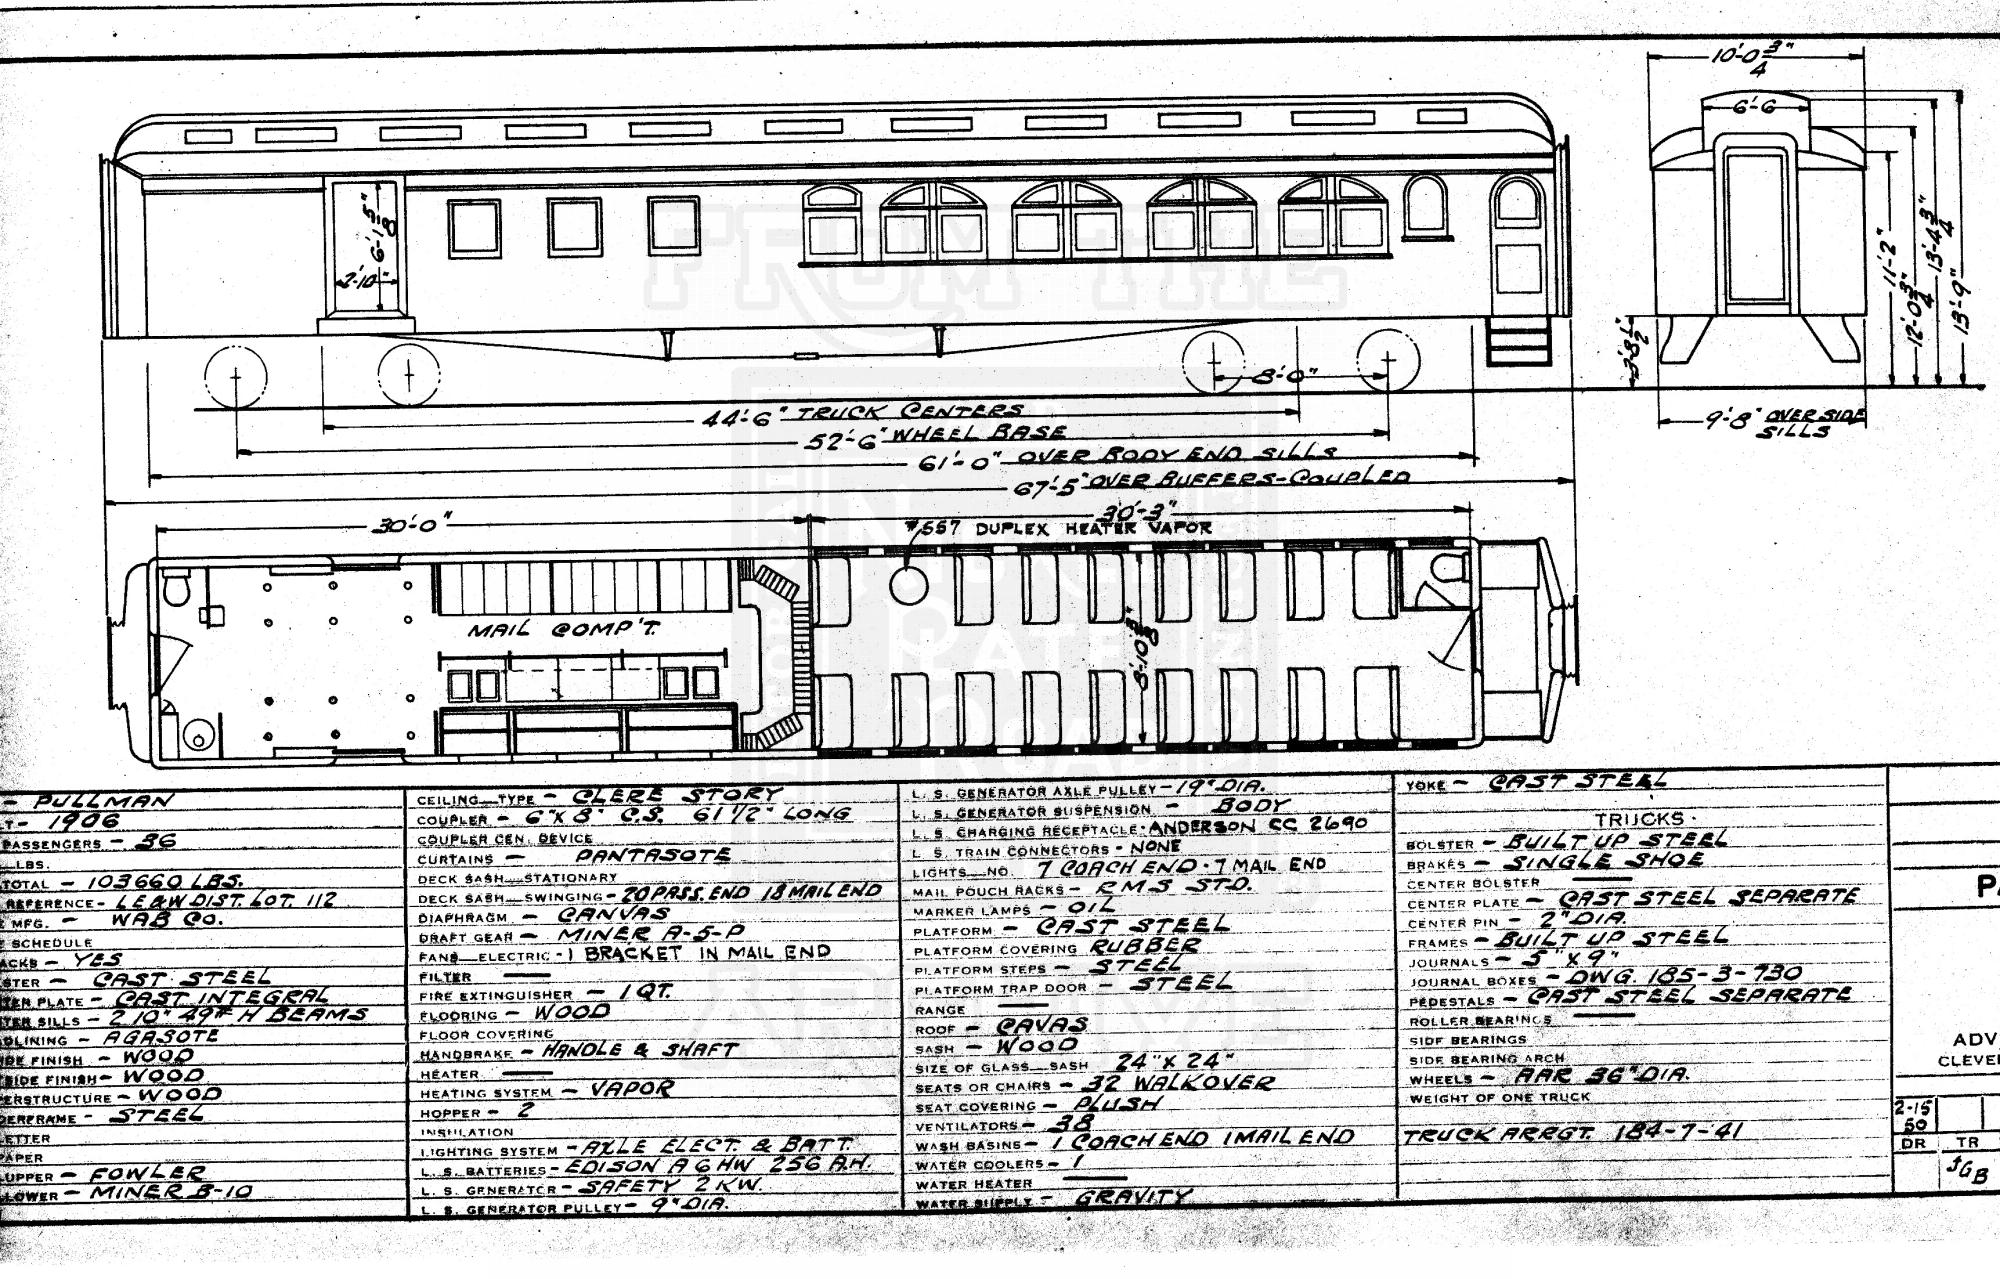 10'-0 3/4"
6'-6
6'-1 5/8"
2'-10"
11'-2"
12'-0 3/4"
13'-4 3/4"
13'-9"
3'-8 1/2"
8'-0"
9'-8" OVER SIDE
SILLS
44'-6" TRUCK CENTERS
52'-6" WHEEL BASE
61'-0" OVER BODY END SILLS
67'-5" OVER BUFFERS-COUPLED
30'-0"
30'-3"
#557 DUPLEX HEATER VAPOR
MAIL COMP'T.
FROM THE
NICKEL
PLATE
ROAD
ARCHIVE
- PULLMAN
T- 1906
PASSENGERS - 36
LBS.
TOTAL - 103660 LBS.
REFERENCE - L.E.&W DIST. LOT. 112
MFG. - WAB CO.
SCHEDULE
ACKS - YES
STER - CAST STEEL
TER PLATE - CAST INTEGRAL
TER SILLS - 2 10" 49# H BEAMS
DLINING - AGASOTE
IDE FINISH - WOOD
SIDE FINISH - WOOD
ERSTRUCTURE - WOOD
DERFRAME - STEEL
ETTER
APER
UPPER - FOWLER
LOWER - MINER B-10
CEILING TYPE - CLERE STORY
COUPLER - 6" X 8" C.S. 61 1/2" LONG
COUPLER CEN. DEVICE
CURTAINS - PANTASOTE
DECK SASH STATIONARY
DECK SASH SWINGING - 20 PASS. END 18 MAIL END
DIAPHRAGM - CANVAS
DRAFT GEAR - MINER A-5-P
FANS ELECTRIC - 1 BRACKET IN MAIL END
FILTER
FIRE EXTINGUISHER - 1 QT.
FLOORING - WOOD
FLOOR COVERING
HANDBRAKE - HANDLE & SHAFT
HEATER
HEATING SYSTEM - VAPOR
HOPPER - 2
INSULATION
LIGHTING SYSTEM - AXLE ELECT. & BATT.
L. S. BATTERIES - EDISON A 6 HW 256 A.H.
L. S. GENERATOR - SAFETY 2 KW.
L. S. GENERATOR PULLEY - 9" DIA.
L. S. GENERATOR AXLE PULLEY - 19" DIA.
L. S. GENERATOR SUSPENSION - BODY
L. S. CHARGING RECEPTACLE - ANDERSON CC 2690
L. S. TRAIN CONNECTORS - NONE
LIGHTS NO. 7 COACH END - 7 MAIL END
MAIL POUCH RACKS - R M S STD.
MARKER LAMPS - OIL
PLATFORM - CAST STEEL
PLATFORM COVERING RUBBER
PLATFORM STEPS - STEEL
PLATFORM TRAP DOOR - STEEL
RANGE
ROOF - CAVAS
SASH - WOOD
SIZE OF GLASS SASH 24" X 24"
SEATS OR CHAIRS - 32 WALKOVER
SEAT COVERING - PLUSH
VENTILATORS - 38
WASH BASINS - 1 COACH END 1 MAIL END
WATER COOLERS - 1
WATER HEATER
WATER SUPPLY - GRAVITY
YOKE - CAST STEEL
TRUCKS
BOLSTER - BUILT UP STEEL
BRAKES - SINGLE SHOE
CENTER BOLSTER
CENTER PLATE - CAST STEEL SEPARATE
CENTER PIN - 2" DIA.
FRAMES - BUILT UP STEEL
JOURNALS - 5" X 9"
JOURNAL BOXES - DWG. 185-3-730
PEDESTALS - CAST STEEL SEPARATE
ROLLER BEARINGS
SIDE BEARINGS
SIDE BEARING ARCH
WHEELS - AAR 36" DIA.
WEIGHT OF ONE TRUCK
TRUCK ARRGT. 184-7-41
ADV
CLEVE
2-15
50
DR TR
JGB